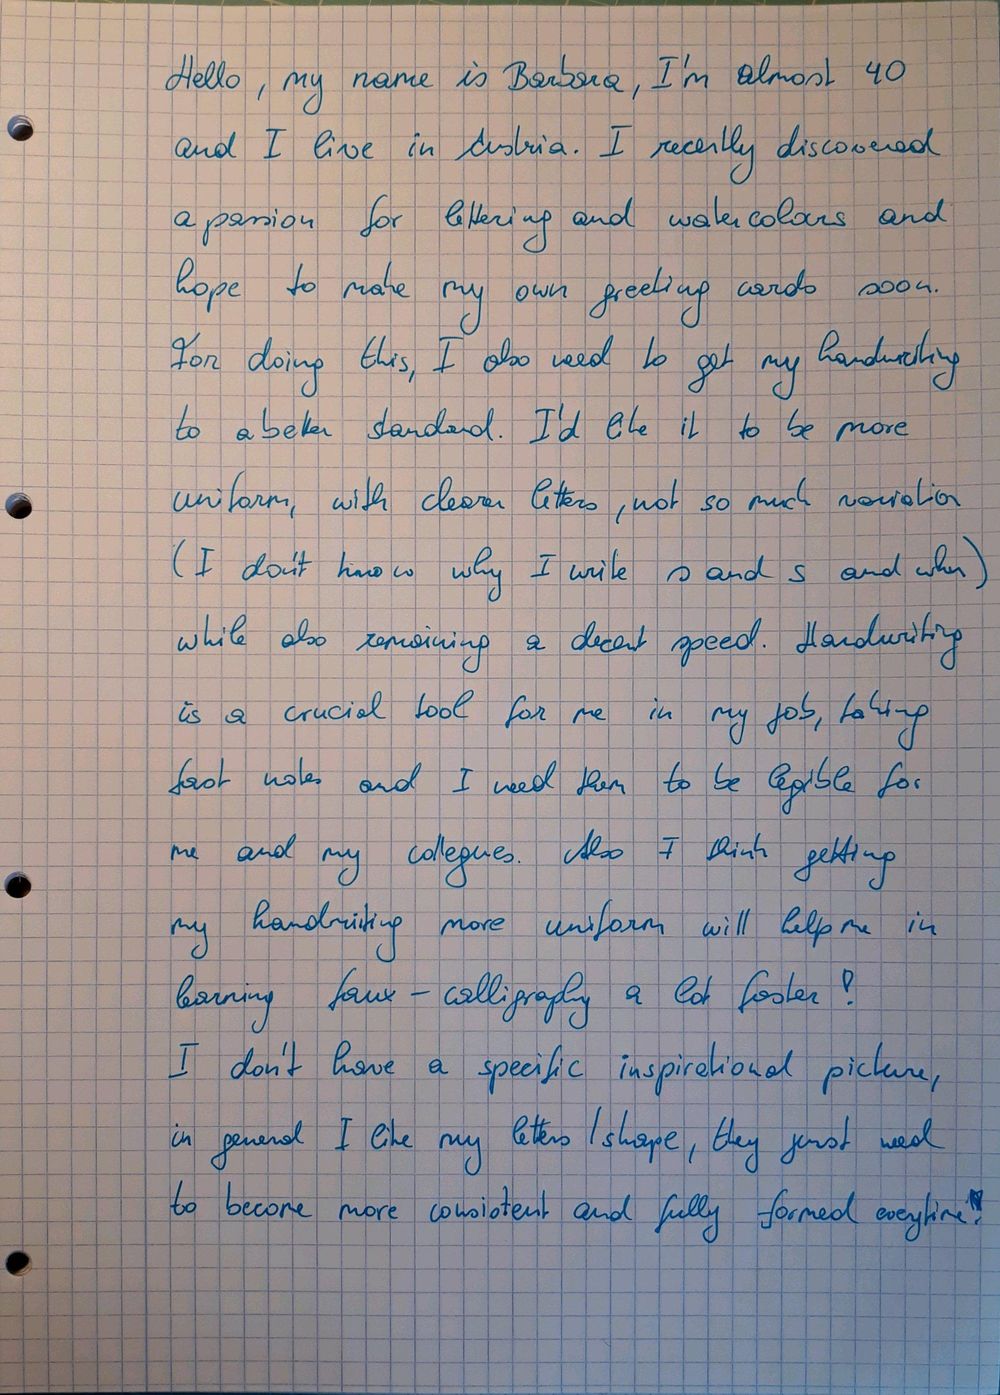 Hello, my name is Barbara, I'm almost 40
and I live in Austria. I recently discovered
a passion for lettering and watercolours and
hope to make my own greeting cards soon.
For doing this, I also need to get my handwriting
to a better standard. I'd like it to be more
uniform, with clearer letters, not so much variation
(I don't know why I write s and s and when)
while also remaining a decent speed. Handwriting
is a crucial tool for me in my job, taking
fast notes and I need them to be legible for
me and my collegues. Also I think getting
my handwriting more uniform will help me in
learning faux-calligraphy a lot faster!
I don't have a specific inspirational picture,
in general I like my letters/shape, they just need
to become more consistent and fully formed everytime!